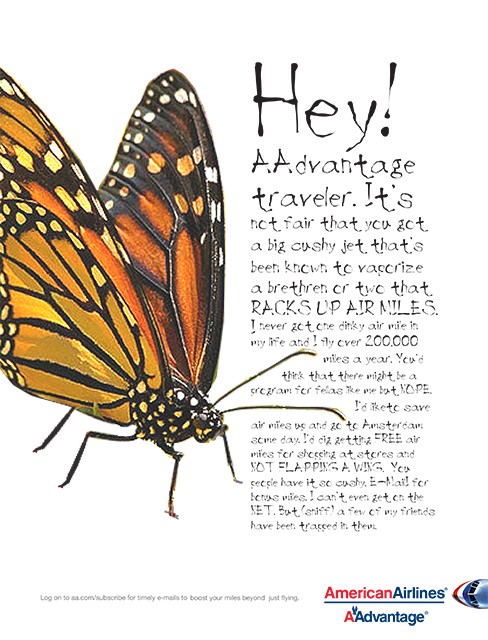 Hey!
AAdvantage
traveler. It's
not fair that you got
a big cushy jet that's
been known to vaporize
a brethren or two that
RACKS UP AIR MILES.
I never got one dinky air mile in
my life and I fly over 200,000
miles a year. You'd
think that there might be a
program for fellas like me but NOPE.
I'd like to save
air miles up and go to Amsterdam
some day. I'd dig getting FREE air
miles for shopping at stores and
NOT FLAPPING A WING. You
people have it so cushy. E-Mail for
bonus miles. I can't even get on the
NET. But (sniff) a few of my friends
have been trapped in them.
Log on to aa.com/subscribe for timely e-mails to boost your miles beyond just flying.
AmericanAirlines®
AAdvantage®